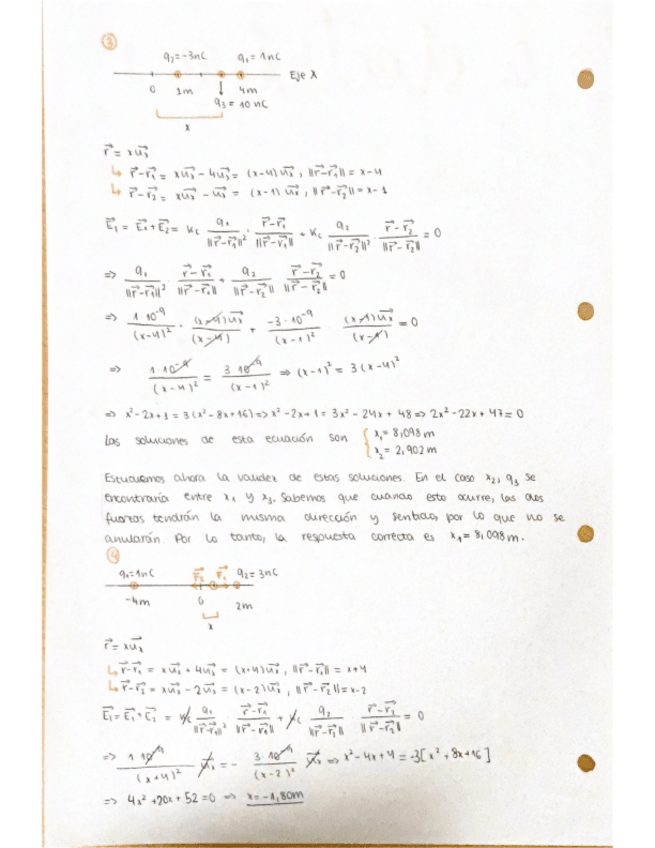 ③
q₂=-3nC q₁=1nC
Eje X
0 1m 4m
q₃ = 10 nC
x
r⃗ = x u⃗ₓ
↳ r⃗-r⃗₁ = x u⃗ₓ - 4u⃗ₓ = (x-4) u⃗ₓ , ||r⃗-r⃗₁|| = x-4
↳ r⃗-r⃗₂ = x u⃗ₓ - u⃗ₓ = (x-1) u⃗ₓ , ||r⃗-r⃗₂|| = x-1
E⃗₁ = E⃗₁+E⃗₂ = K_c q₁/||r⃗-r⃗₁||² · (r⃗-r⃗₁)/||r⃗-r⃗₁|| + K_c q₂/||r⃗-r⃗₂||² · (r⃗-r⃗₂)/||r⃗-r⃗₂|| = 0
=> q₁/||r⃗-r⃗₁||² · (r⃗-r⃗₁)/||r⃗-r⃗₁|| + q₂/||r⃗-r⃗₂|| (r⃗-r⃗₂)/||r⃗-r⃗₂|| = 0
=> 1·10⁻⁹/(x-4)² · (x-4)u⃗ₓ/(x-4) + -3·10⁻⁹/(x-1)² · (x-1)u⃗ₓ/(x-1) = 0
=> 1·10⁻⁹/(x-4)² = 3·10⁻⁹/(x-1)² => (x-1)² = 3(x-4)²
=> x²-2x+1 = 3(x²-8x+16) => x²-2x+1 = 3x²-24x+48 => 2x²-22x+47 = 0
Las soluciones de esta ecuación son { x₁= 8,098 m
x₂= 2,902 m
Estudiemos ahora la validez de estas soluciones. En el caso x₂, q₃ se
encontraría entre x₁ y x₃. Sabemos que cuando esto ocurre, las dos
fuerzas tendrán la misma dirección y sentido, por lo que no se
anularán. Por lo tanto, la respuesta correcta es x₁= 8,098 m.
④
q₁=1nC F⃗₂ F⃗₁ q₂= 3nC
-4m 0 2m
x
r⃗ = x u⃗ₓ
↳ r⃗-r⃗₁ = x u⃗ₓ + 4u⃗ₓ = (x+4) u⃗ₓ , ||r⃗-r⃗₁|| = x+4
↳ r⃗-r⃗₂ = x u⃗ₓ - 2u⃗ₓ = (x-2) u⃗ₓ , ||r⃗-r⃗₂|| = x-2
E⃗₁= E⃗₁+E⃗₂ = K_c q₁/||r⃗-r⃗₁||² (r⃗-r⃗₁)/||r⃗-r⃗₁|| + K_c q₂/||r⃗-r⃗₂|| (r⃗-r⃗₂)/||r⃗-r⃗₂|| = 0
=> 1·10⁻⁹/(x+4)² u⃗ₓ = - 3·10⁻⁹/(x-2)² u⃗ₓ => x²-4x+4 = -3[x²+8x+16]
=> 4x²+20x+52=0 => x=-1,80m